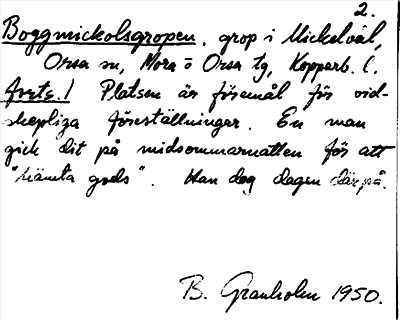 2.
Boggmickolsgropen, grop i Mickelvål,
Orsa sn, Mora o Orsa tg, Kopparb. l.
forts.) Platsen är föremål för vid-
skepliga föreställningar. En man
gick dit på midsommarnatten för att
"hämta gods". Han dog dagen därpå.
B. Granholm 1950.